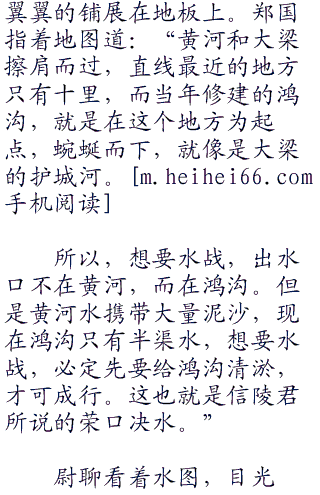 翼翼的铺展在地板上。郑国
指着地图道：“黄河和大梁
擦肩而过，直线最近的地方
只有十里，而当年修建的鸿
沟，就是在这个地方为起
点，蜿蜒而下，就像是大梁
的护城河。[m.heihei66.com
手机阅读]
所以，想要水战，出水
口不在黄河，而在鸿沟。但
是黄河水携带大量泥沙，现
在鸿沟只有半渠水，想要水
战，必定先要给鸿沟清淤，
才可成行。这也就是信陵君
所说的荣口决水。”
尉聊看着水图，目光